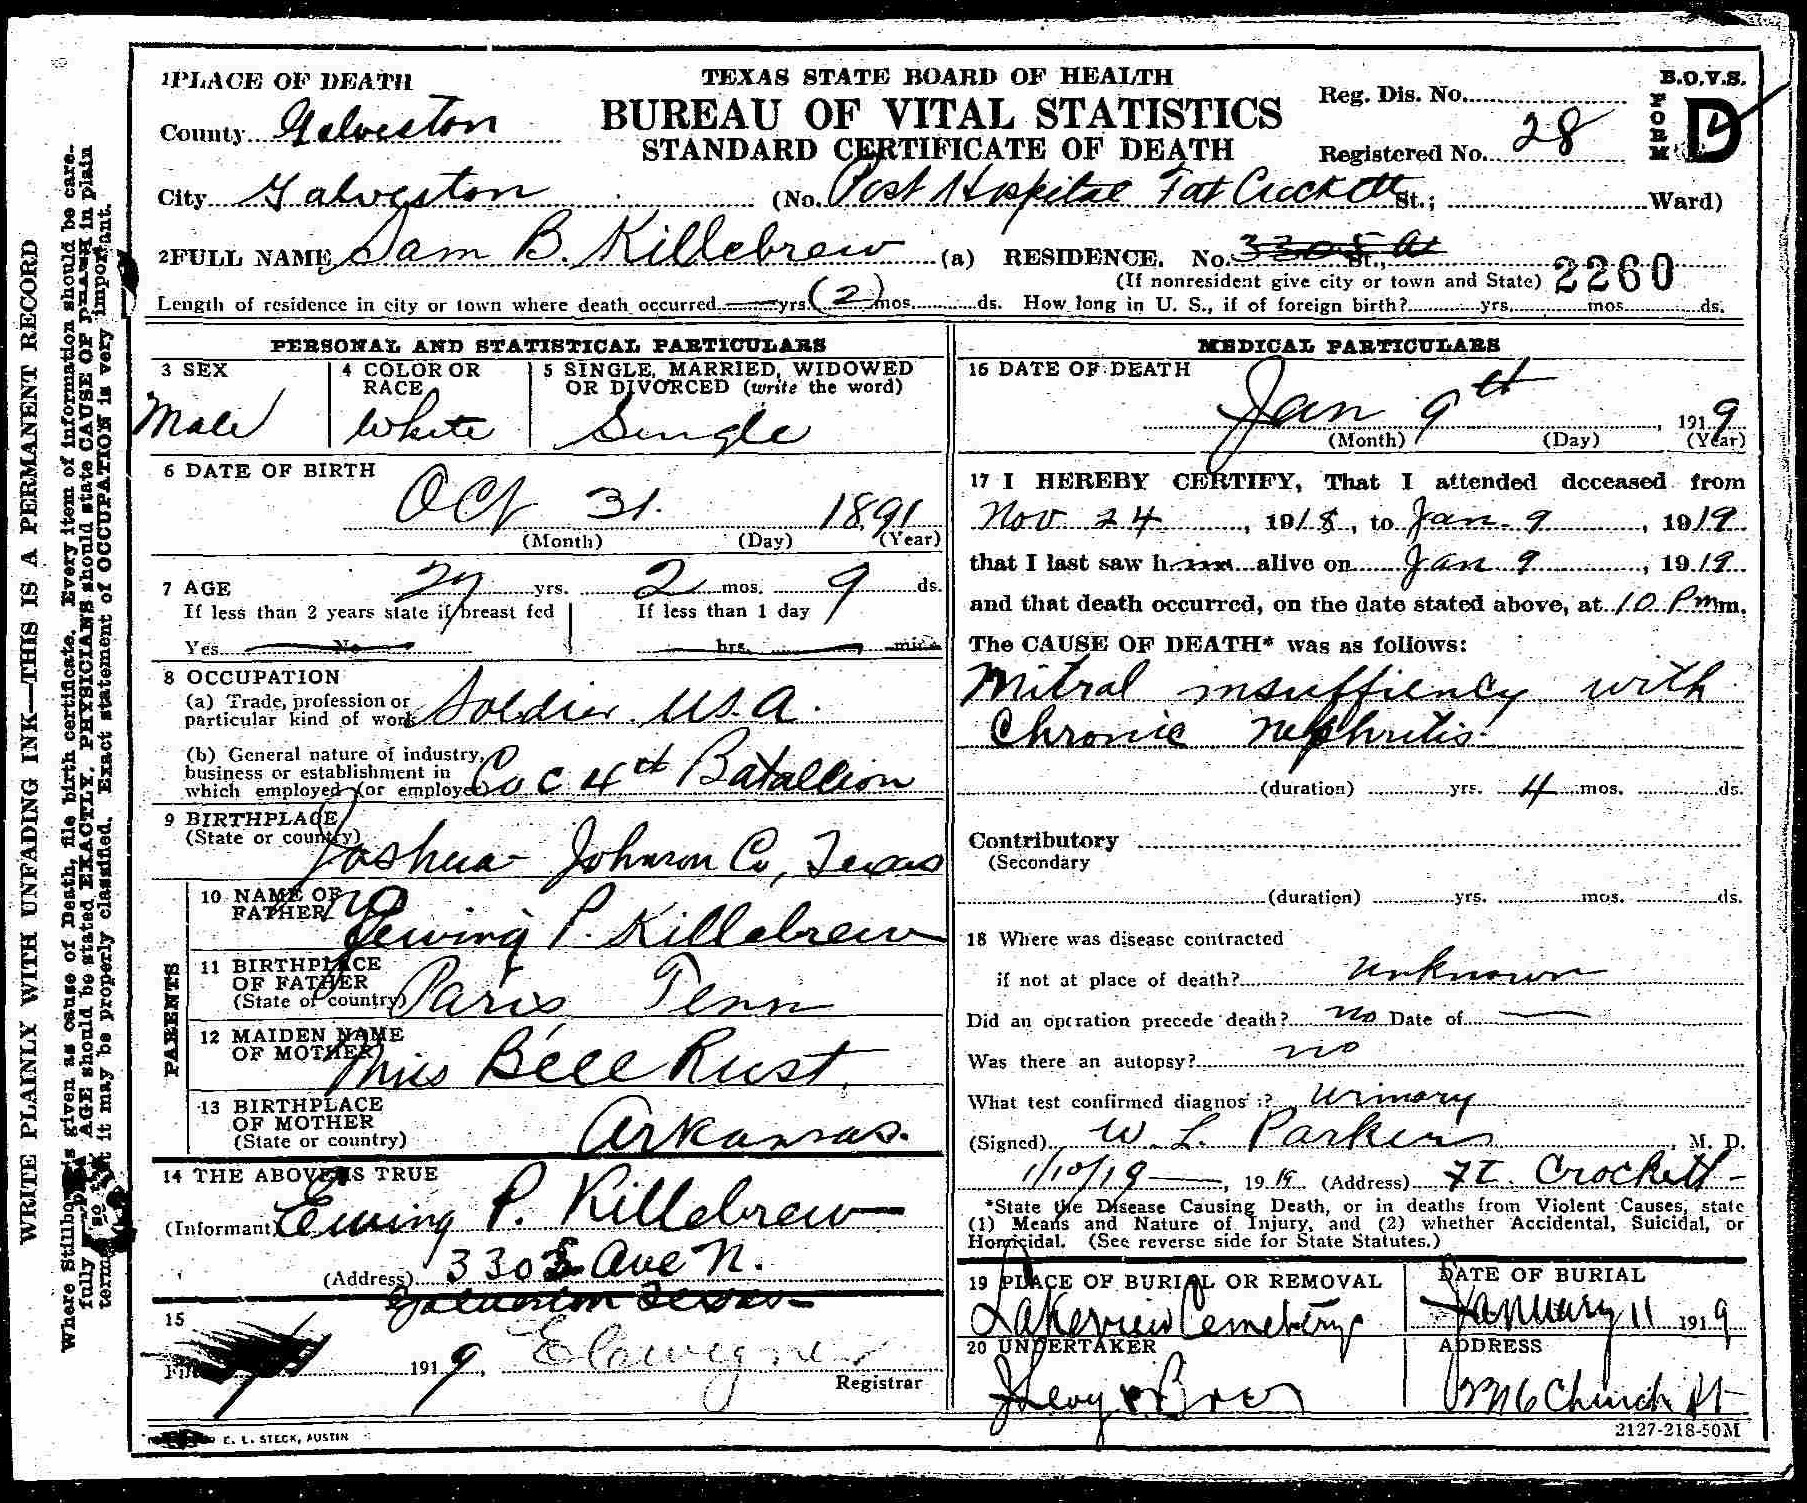 WRITE PLAINLY WITH UNFADING INK—THIS IS A PERMANENT RECORD
given as cause of Death, file birth certificate. Every item of information should be care-
fully AGE should be stated EXACTLY. PHYSICIANS should state CAUSE OF DEATH in plain
terms it may be properly classified. Exact statement of OCCUPATION is very important.
1 PLACE OF DEATH
TEXAS STATE BOARD OF HEALTH
BUREAU OF VITAL STATISTICS
STANDARD CERTIFICATE OF DEATH
B.O.V.S.
FORM D
Reg. Dis. No.
Registered No. 28
County Galveston
City Galveston (No. Post Hospital Fort Crockett St.; Ward)
2 FULL NAME Sam B. Killebrew (a) RESIDENCE. No. 3305 St., Av
(If nonresident give city or town and State) 2260
Length of residence in city or town where death occurred yrs. (2) mos. ds. How long in U. S., if of foreign birth? yrs. mos. ds.
PERSONAL AND STATISTICAL PARTICULARS
3 SEX
Male
4 COLOR OR RACE
White
5 SINGLE, MARRIED, WIDOWED OR DIVORCED (write the word)
Single
6 DATE OF BIRTH
Oct 31. 1891
(Month) (Day) (Year)
7 AGE 27 yrs. 2 mos. 9 ds.
If less than 2 years state if breast fed
Yes No
If less than 1 day
hrs. min.
8 OCCUPATION
(a) Trade, profession or
particular kind of work Soldier U.S.A.
(b) General nature of industry,
business or establishment in
which employed (or employer) Co C 4th Batallion
9 BIRTHPLACE
(State or country) Joshua Johnson Co, Texas
PARENTS
10 NAME OF FATHER Ewing P. Killebrew
11 BIRTHPLACE
OF FATHER
(State or country) Paris Tenn
12 MAIDEN NAME
OF MOTHER Miss Bell Rust
13 BIRTHPLACE
OF MOTHER
(State or country) Arkansas.
14 THE ABOVE IS TRUE
(Informant) Ewing P. Killebrew
(Address) 3305 Ave N.
Galveston Texas
15
1919,
Registrar
E. L. STECK, AUSTIN
MEDICAL PARTICULARS
16 DATE OF DEATH
Jan 9th, 1919
(Month) (Day) (Year)
17 I HEREBY CERTIFY, That I attended deceased from
Nov 24, 1918, to Jan. 9, 1919
that I last saw him alive on Jan 9, 1919.
and that death occurred, on the date stated above, at 10 P.m m.
The CAUSE OF DEATH* was as follows:
Mitral insuffiency with
Chronic Nephritis.
(duration) yrs. 4 mos. ds.
Contributory
(Secondary
(duration) yrs. mos. ds.
18 Where was disease contracted
if not at place of death? Unknown
Did an operation precede death? no Date of
Was there an autopsy? no
What test confirmed diagnosis? Urinary
(Signed) W. L. Parkins, M. D.
1/10/19, 1919 (Address) Ft. Crockett
*State the Disease Causing Death, or in deaths from Violent Causes, state
(1) Means and Nature of Injury, and (2) whether Accidental, Suicidal, or
Homicidal. (See reverse side for State Statutes.)
19 PLACE OF BURIAL OR REMOVAL
Lakeview Cemetery
DATE OF BURIAL
January 11 1919
20 UNDERTAKER
J Levy & Bros
ADDRESS
Church St
2127-218-50M